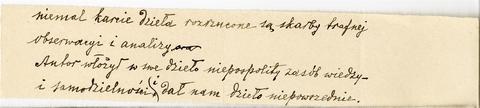 niemal karcie dzieła rozrzucone są skarby trafnej
obserwacyi i analizy
Autor włożył w swe dzieło niepospolity zasób wiedzy
i samodzielności i dał nam dzieło niepowszednie.